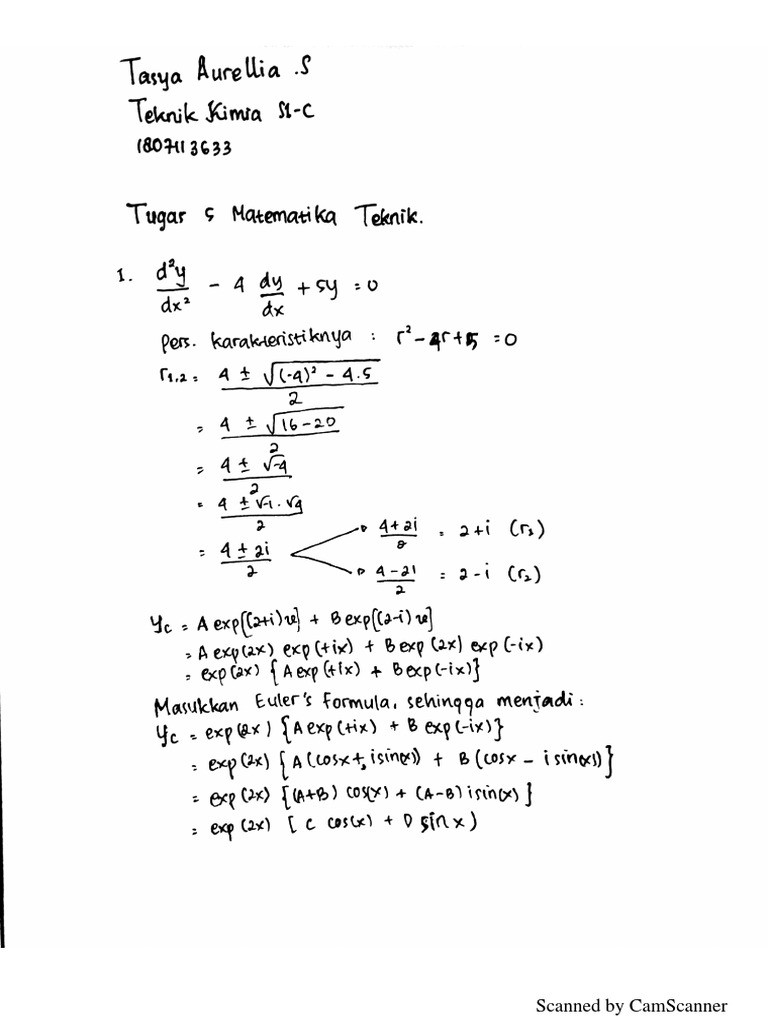 Tasya Aurellia .S
Teknik Kimia S1-C
1807113633
Tugas 5 Matematika Teknik.
1. d²y/dx² - 4 dy/dx + 5y = 0
Pers. karakteristiknya : r² - 4r + 5 = 0
r₁,₂ = (4 ± √((-4)² - 4.5))/2
= (4 ± √(16-20))/2
= (4 ± √-4)/2
= (4 ± √-1 . √4)/2
= (4 ± 2i)/2 → (4+2i)/2 = 2+i (r₁)
→ (4-2i)/2 = 2-i (r₂)
Yc = A exp[(2+i)x] + B exp[(2-i)x]
= A exp(2x) exp(+ix) + B exp(2x) exp(-ix)
= exp(2x) {A exp(+ix) + B exp(-ix)}
Masukkan Euler's Formula, sehingga menjadi :
Yc = exp(2x) {A exp(+ix) + B exp(-ix)}
= exp(2x) {A(cosx + isin(x)) + B(cosx - i sin(x))}
= exp(2x) {(A+B) cos(x) + (A-B) i sin(x)}
= exp(2x) [C cos(x) + D sin x)
Scanned by CamScanner